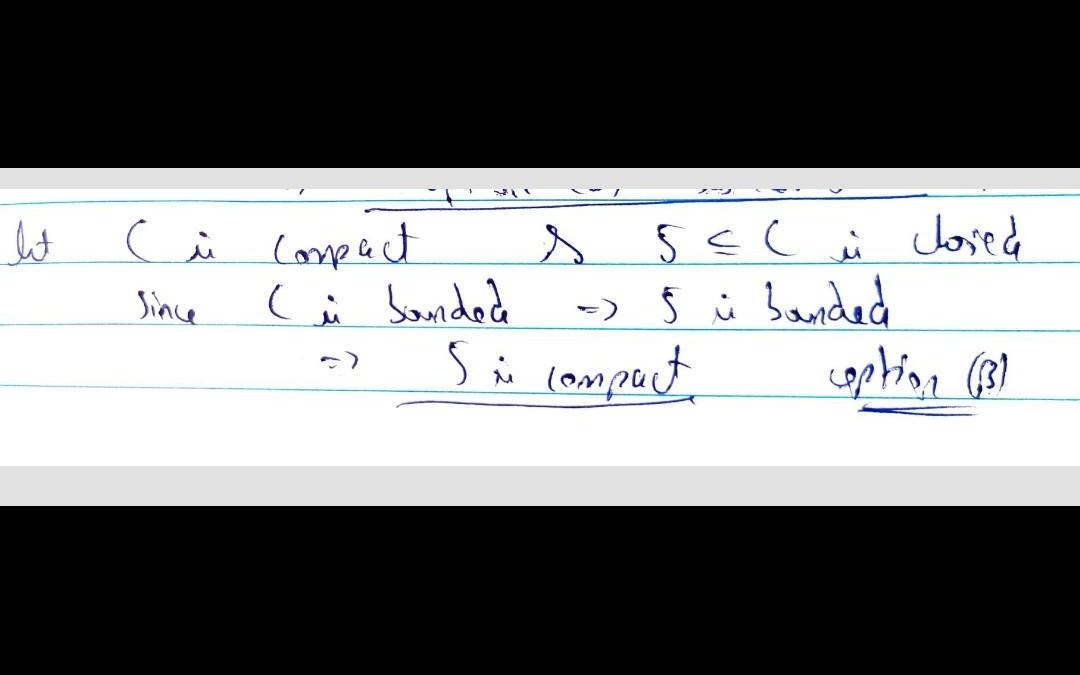 let C is compact & S ⊆ C is closed
since C is bounded => S is bounded
=> S is compact option (B)